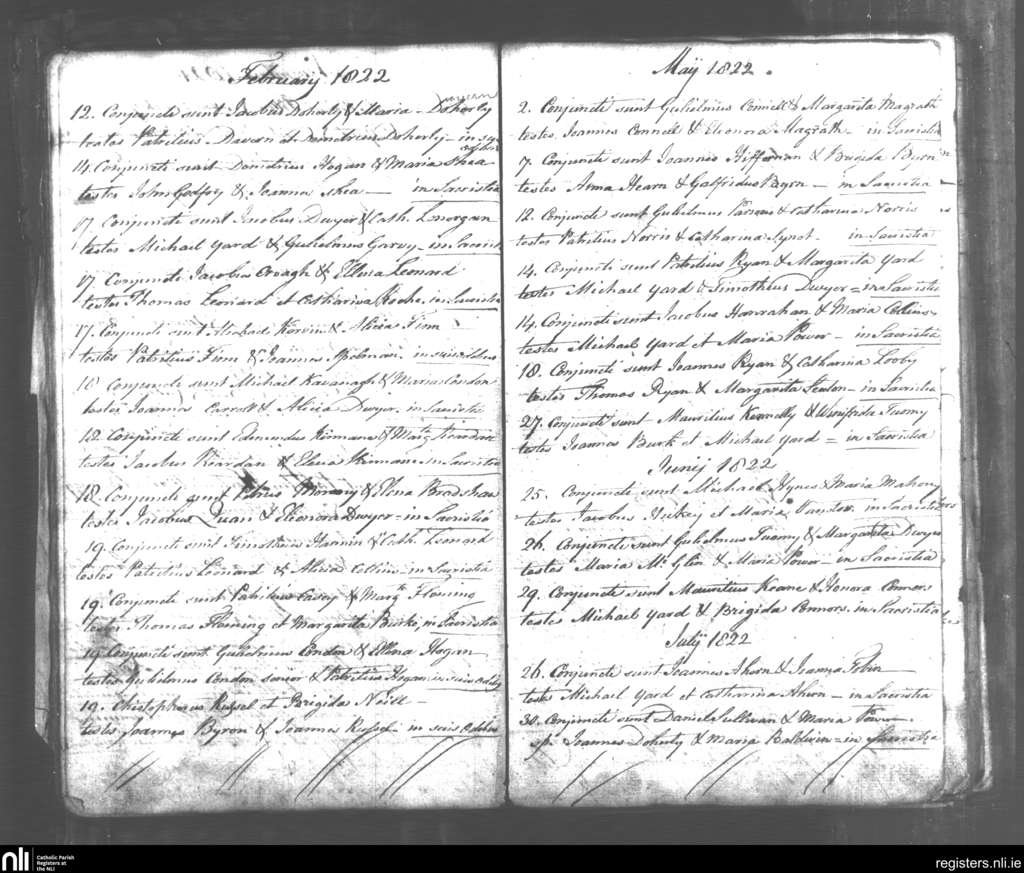 February 1822
12. Conjuncti sunt Jacobus Doherty & Maria Doherty
testes Patritius Davern et Demetrius Doherty - in suis
aedibus
14. Conjuncti sunt Demetrius Hogan & Maria Shea
testes John Godfry & Joanna Shea - in Sacristia
17. Conjuncti sunt Jacobus Dwyer & Cath. Lonorgan
testes Michael Yard & Gulielmus Garvy in Sacristia
17. Conjuncti Jacobus Croagh & Ellena Leonard
testes Thomas Leonard et Catharina Roche in Sacristia
17. Conjuncti sunt Michael & Alicia Finn
testes Patritius Finn & Joannes in suis aedibus
18 Conjuncti sunt Michael Kavanagh & Maria Condon
testes Joannes Carroll & Alicia Dwyer. in Sacristia
18. Conjuncti sunt Edmundus Kirwane & Marg. Reardan
testes Jacobus Reardan & Elena Kirwane in Sacristia
18. Conjuncti sunt Petrus & Elena Bradshaw
testes Jacobus Quan & Eleonora Dwyer - in Sacristia
19. Conjuncti sunt Timotheus & Cath. Leonard
testes Patritius Leonard & Alicia Collins in Sacristia
19. Conjuncti sunt Patritius Casey & Margt. Fleming
testes Thomas Fleming et Margarita Burke, in Sacristia
19 Conjuncti sunt Gulielmus Condon & Ellena Hogan
testes Gulielmus Condon senior & Patritius Hogan in suis aedibus
19. Christopherus Russel et Brigida Neill -
testes Joannes Byron & Joanna Russel - in suis aedibus
Maij 1822.
2. Conjuncti sunt Gulielmus Connell & Margarita Magrath
testes Joannes Connell & Eleonora Magrath - in Sacristia
7. Conjuncti sunt Joannes Hiffernan & Brigida Byrn
testes Anna Hearn & Galfridus Byrn - in Sacristia
12. Conjuncti sunt Gulielmus Parsons & Catharina Norris
testes Patritius Norris & Catharina Synot - in Sacristia
14. Conjuncti sunt Patritius Ryan & Margarita Yard
testes Michael Yard & Timotheus Dwyer = in Sacristia
14. Conjuncti sunt Jacobus Hanrahan & Maria Collins
testes Michael Yard et Maria Power - in Sacristia
18. Conjuncti sunt Joannes Ryan & Catharina Looby
testes Thomas Ryan & Margarita - in Sacristia
27. Conjuncti sunt Mauritius Kennelly & Winifreda Tuomy
testes Joannes Burk et Michael Yard = in Sacristia
Junij 1822
25. Conjuncti sunt Michael Hynes & Maria Mahony
testes Jacobus Hickey et Maria in Sacristia
26. Conjuncti sunt Gulielmus Tuomy & Margarita Dwyer
testes Maria Mc Glin & Maria Power - in Sacristia
29. Conjuncti sunt Mauritius Keane & Honora Connors
testes Michael Yard & Brigida Connors. in Sacristia
Julij 1822
26. Conjuncti sunt Joannes Ahern & Joanna Tobin
testes Michael Yard et Catharina Ahern - in Sacristia
30. Conjuncti sunt Daniel Sullivan & Maria Power
sp. Joannes Doherty & Maria Baldwin = in Sacristia
nli
Catholic Parish
Registers at
the NLI
registers.nli.ie